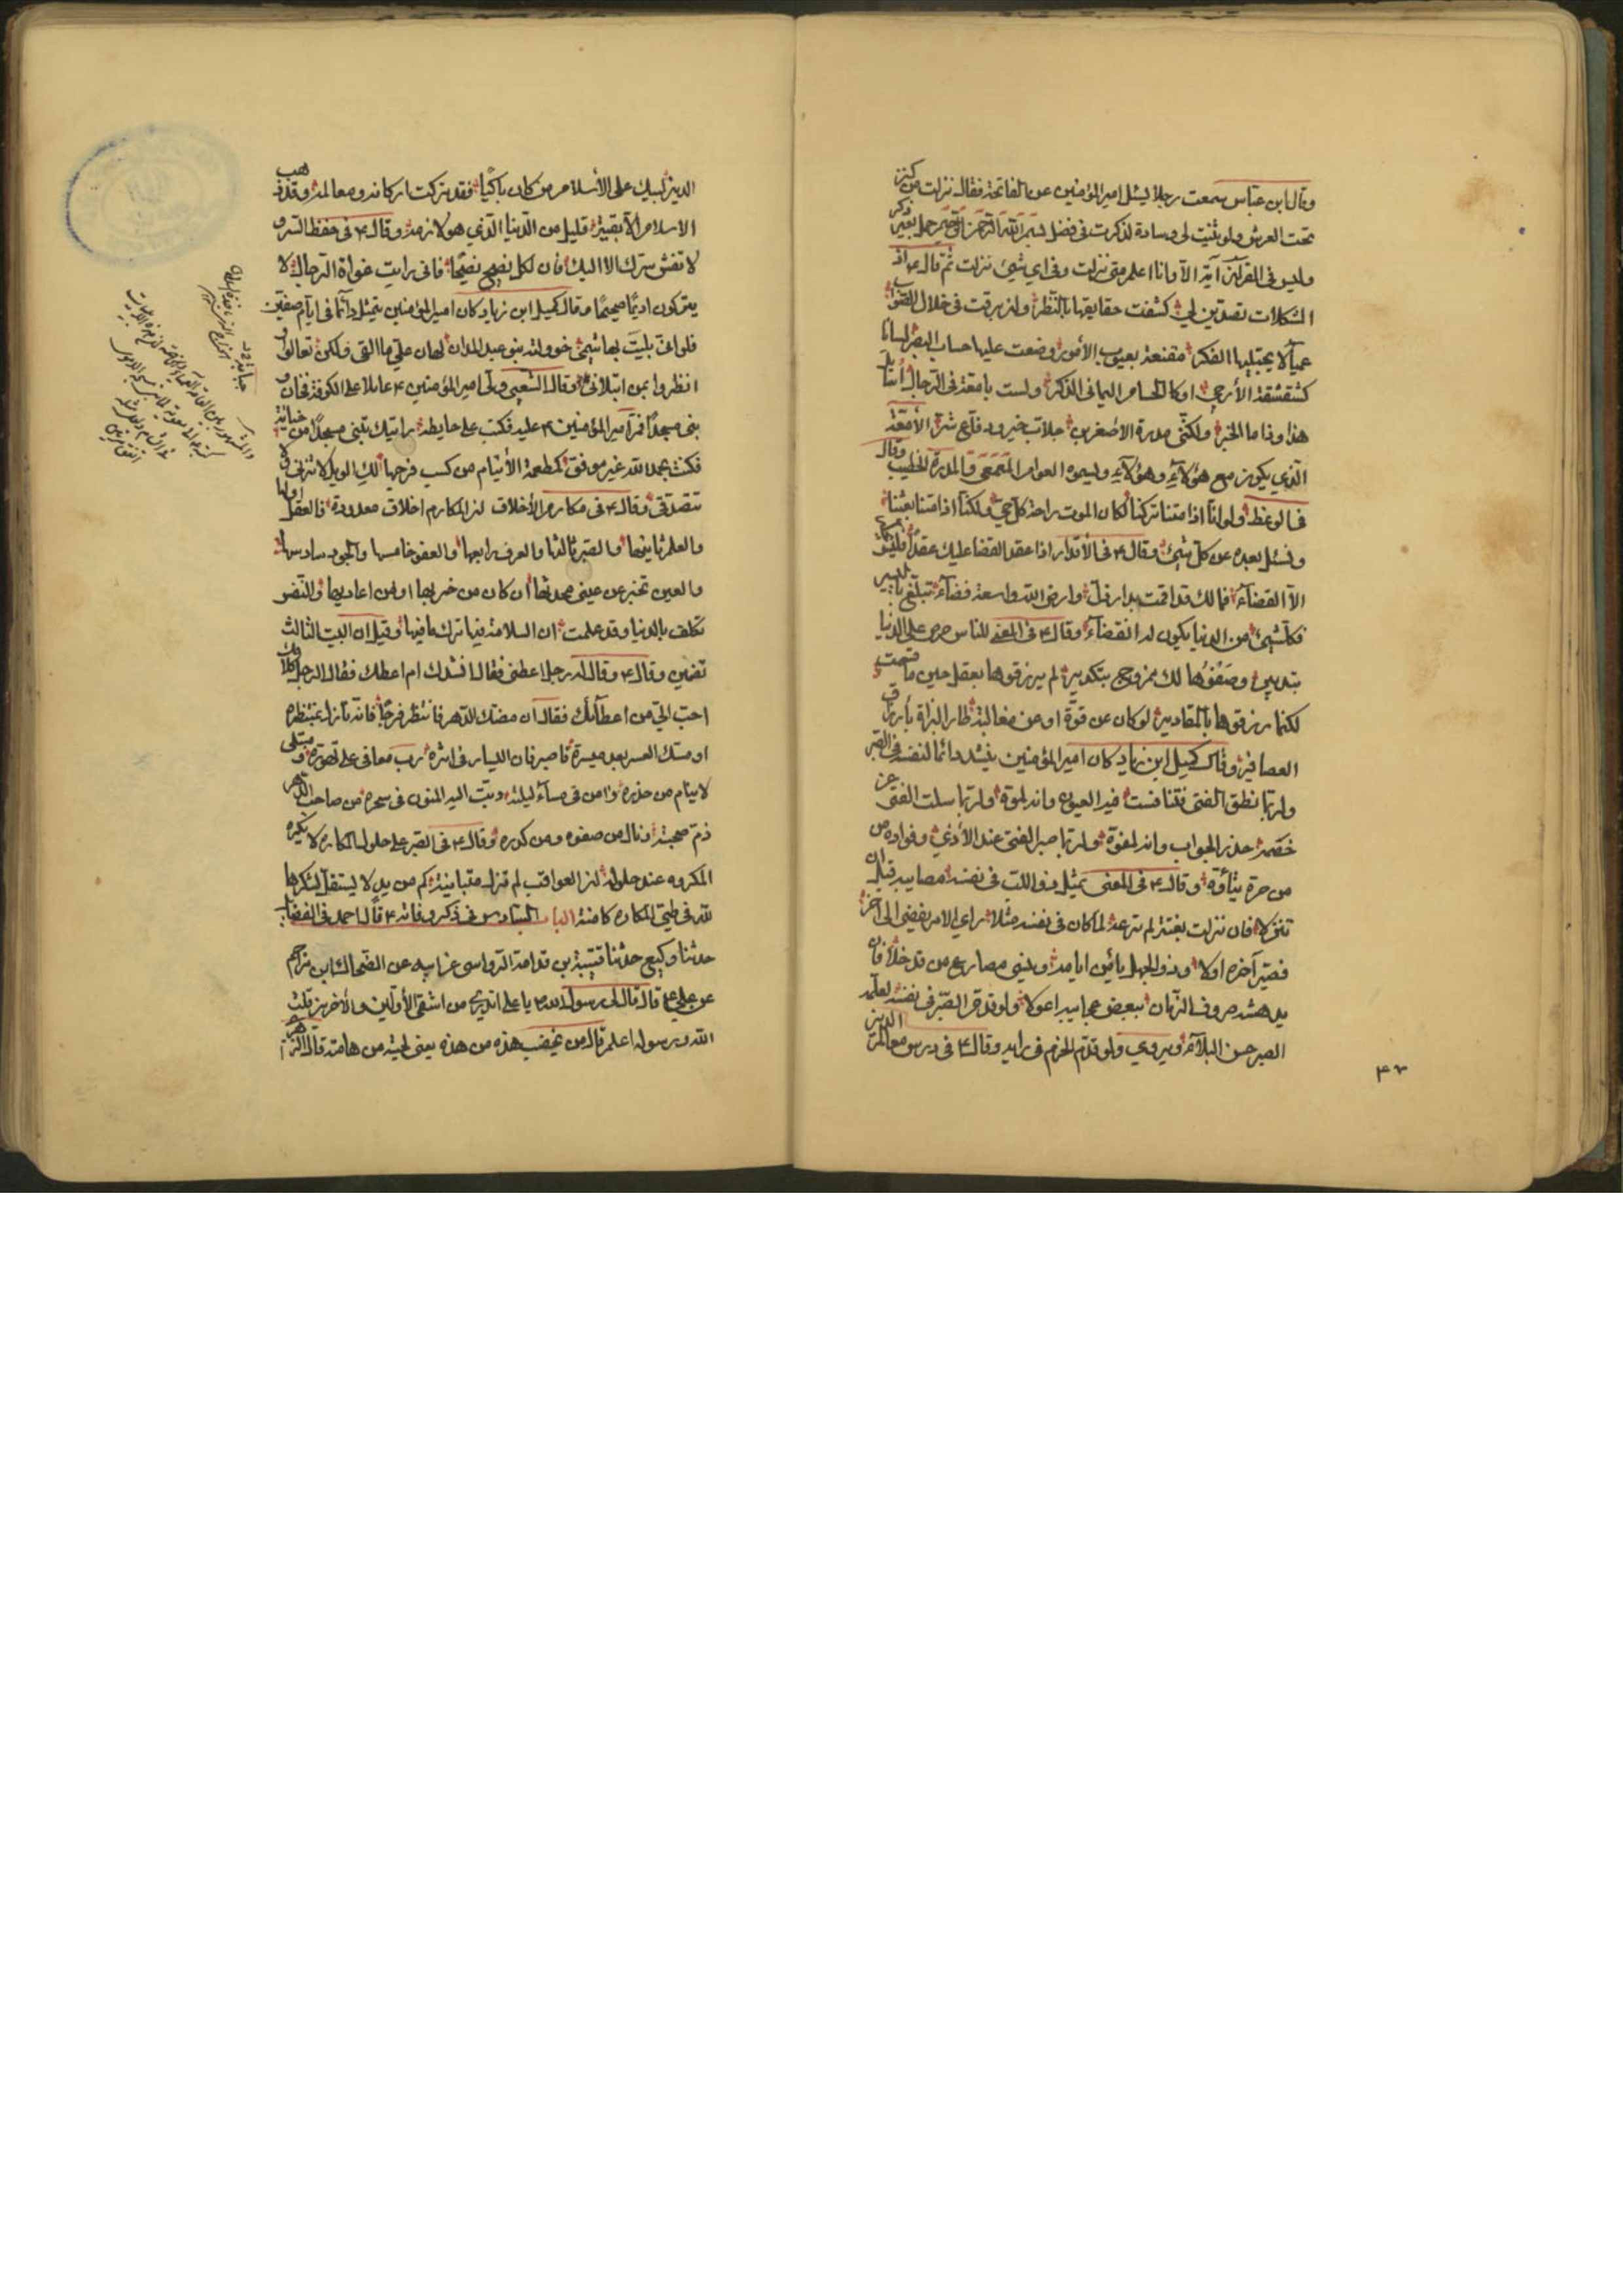 وقال ابن عباس سمعت رجلا يسئل امير المؤمنين عن الفاتحة فقال نزلت من كنز
تحت العرش ولو ثنيت لي وسادة لذكرت في فضل بسم الله الرحمن الرحيم حمل بعير ذكر
وليس في القرآن آية الا وانا اعلم متى نزلت وفي اي شيئ نزلت ثم قال ۴ اذا
المشكلات تصدين لي كشفت حقايقها بالنظر وان برقت في خلال الصواب
عمياء لا يجتليها الفكر مقنعة بعيوب الأمور وضعت عليها حساب البصر لسانا
كشقشقة الأرحبي او كالحسام اليماني الذكر ولست بامعة في الرجال اسائل
هذا وذا ما الخبر ولكنني مدرة الاصغرين جلاب خير ودفاع شر الأمعة
الذي يكون مع هؤلاء وهؤلاء ويسموه العوام المعمعي والمدرة الخطيب وقال
في الوعظ ولو انا اذا متنا تركنا لكان الموت راحة كل حي ولكنا اذا متنا بعثنا
ونسئل بعده عن كل شيئ وقال ۴ في الأقدار اذا عقد القضا عليك عقدا فليس
الا القضاء فمالك قد اقمت بدار ذل وارض الله واسعة فضاء تبلغ باليسير
فكل شيئ من الدنيا يكون له انقضاء وقال ۴ في المعنى للناس حرص على الدنيا
بتدبير وصفوها لك ممزوج بتكدير لم يرزقوها بعقل حين ما قسمت
لكنما رزقوها بالمقادير لو كان عن قوة او عن مغالبة طار البزاة بأرزاق
العصافير وقال كميل ابن زياد كان امير المؤمنين ينشد دائما لنفسه في الصبر
ولربما نطق الفتى فتنافست فيه العيون وانه لمموه ولربما سكت الفتى عن
خصمه حذر الجواب وانه لمفوه ولربما صبر الفتى عند الأذى وفواده من
من حره يتأوه وقال ۴ في المعنى يمثل ذو اللب في نفسه مصايبه قبل ان
تنزلا فان نزلت بغتة لم ترعه لما كان في نفسه مثلا راي الامر يفضي الى آخر
فصير آخره اولا وذو الجهل يأمن ايامه وينسى مصارع من قد خلا فان
بدهته صروف الزمان ببعض عجايبه اعولا ولو قدم الصبر في نفسه لعلمه
الصبر حسن البلاء ويروى ولو قدم الحزم في رايه وقال ۴ في درس معالم الدين
۴۳
الدين ليبك على الأسلام من كان باكيا فقد تركت اركانه ومعالمه وقد ذهب
الاسلام الا بقية قليل من الدنيا الذي هو لازمه وقال ۴ في حفظ السر
لا تفش سرك الا اليك فان لكل نصيح نصيحا فاني رايت غواة الرجال لا
يتركون اديما صحيحا وقال كميل ابن زياد كان امير المؤمنين يتمثل دائما في ايام صفين
فلو انى بليت بهاشمي خوولته بنو عبد المدان لهان علي ما القى ولكن تعالوا
انظروا بمن ابتلاني وقال الشعبي ولى امير المؤمنين ۴ عاملا على الكوفة فخان و
بنى مسجدا فمر امير المؤمنين ۴ عليه فكتب على حايطه رايتك تبني مسجدا من خيانة
فكنت بحمد الله غير موفق كمطعمة الأيتام من كسب فرجها لك الويل لا تزني ولا
تتصدقي وقال ۴ في مكارم الأخلاق ان المكارم اخلاق معدودة فالعقل اولها
والعلم ثانيها والصبر ثالثها والعرف رابعها والعفو خامسها والجود سادسها
والعين تخبر عن عيني محدثها ان كان من حزبها او من اعاديها والنفس
تكلف بالدنيا وقد علمت ان السلامة فيها ترك ما فيها وقيل ان البيت الثالث
تضمين وقال ۴ وقال له رجل اعطني فقال انشدك ام اعطك فقال الرجل كلامك
احب الي من اعطائك فقال ان مضك الدهر فانتظر فرجا فانه نازل بمنتظره
او مسك العسر بعد ميسرة فاصبر فان اليسار في اثره رب معافى على تهوره و مبتلى
لا ينام من حذره وآمن في مساء ليلته دبت اليه المنون في سحره من صاحب الدهر
ذم صحبته ونال من صفوه ومن كدره وقال ۴ في الصبر على حلول المكاره لا يكره
المكروه عند حلوله ان العواقب لم تزل متباينة كم من يد لا يستقل بشكرها
لله في طي المكاره كامنة الباب السادس في ذكر وفاته ۴ قال احمد في الفضايل
حدثنا وكيع حدثنا قتيبة بن قدامة الرواسي عن ابيه عن الضحاك ابن مزاحم
عن علي ۴ قال قال لي رسول الله يا علي اتدري من اشقى الأولين والأخرين قلت
الله ورسوله اعلم قال من يخضب هذه من هذه يعني لحيته من هامته قال الزهري